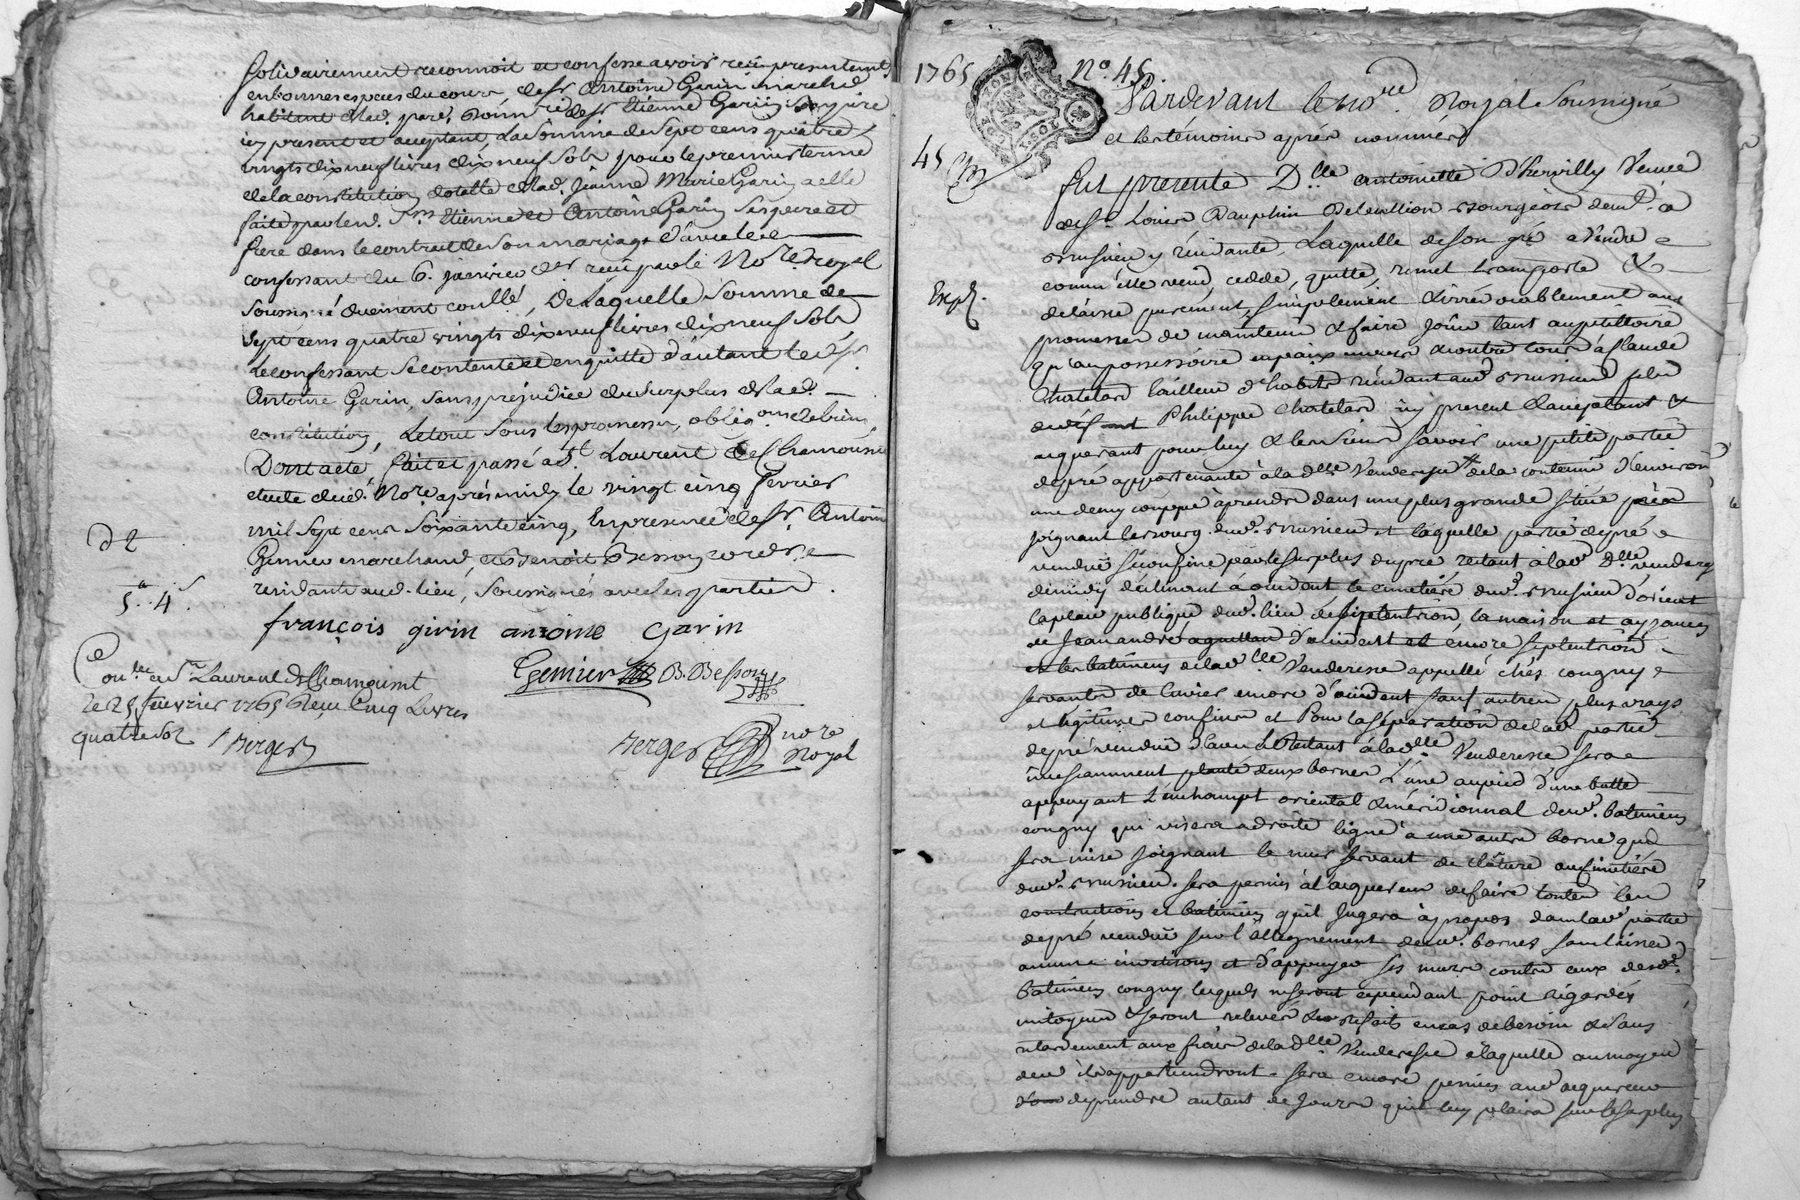 solidairement reconnoit et confesse avoir reçu presentemt
en bonnes especes du cours, de sr Antoine Garin marchd
habitant dud. par
icy present et acceptant, La somme de sept cens quatre
vingts dix neuf livres dix neuf sols pour le premier terme
de la constitution dotalle de lad. Jeanne Marie Garin a elle
faite par led. Srs Etienne et Antoine Garin ses pere et
frere dans le contrat de son mariage d'avec led
confessant du 6. janvier der reçu par le Nore royal
soussigé duement conllé, De laquelle somme de
sept cens quatre vingts dix neuf livres dix neuf sols
le confessant se contente et en quitte d'autant led. sr
Antoine Garin, sans prejudice du surplus de lad.
constitution, Le tout sous les promesses, obligons de biens
Dont acte, fait et passé a St Laurent de Chamousset
etude dud. Nore après midy le vingt cinq fevrier
mil sept cens soixante cinq, En presence de sr Antoine
Genier marchand, et Benoit Besson
residants aud. lieu, soussignés avec les parties.
françois girin antoine Garin
Genier B. Besson
Berger nore
Royal
de
5.. 4s
Conlé a St Laurent de Chamousset
le 25 fevrier 1765 Reçu Cinq Livres
quatre sols Berger
1765 No. 45.
45
Exp.
Pardevant le nore Royal soussigné
et les témoins après nommés
fut presente Dlle antoinette D'hervilly veuve
de sr Louis Dauphin bourgeois dud. a
Brussieu y résidante, Laquelle de son gré a vendu
comm'elle vend, cedde, quitte, remet transporte &
delaisse purement, simplement & irrévocablement avec
promesse de maintenir & faire joüir tant au petittoire
qu'au possessoire envers & contre tous à Claude
Chatelard tailleur d'habits résidant aud. Brussieu fils
de Philippe Chatelard icy present & acceptant &
acquerant pour luy & les siens savoir une petite partie
de pré appartenante à lad. dlle venderesse de la contenue d'environ
une demy coupée à prendre dans une plus grande
joignant le bourg dud. Brussieu et laquelle partie de pré
vendüe se confine par le surplus du pré restant à lad. Dlle venderesse
de midy déclinant à occident le cimetière dud. Brussieu d'orient
la place publique dud. lieu de septentrion, la maison et aysances
de Jean andré d'occident et encore septentrion
et les batimens de lad. dlle Venderesse appellé chés congny
servants de cuvier encore d'occident sauf autres plus vrays
et légitimes confins et Pour la séparation de lad. partie
de pré vendüe d'avec le Restant à lad. dlle Venderesse sera
incessamment planté deux bornes L'une au pied d'une butte
appuyant L'enchampt oriental & méridionnal desd. batimens
congny qui visera a droite ligne à une autre borne qui
sera mise joignant le mur servant de clôture au cimetière
dud. Brussieu. sera permis à l'acquereur de faire toutes les
constructions et batimens qu'il jugera à propos dans lad. partie
de pré vendüe sur l'allignement desd. bornes sans laisser
aucune invetison et d'appuyer ses murs contre ceux desd.
batimens congny lequels ne seront cependant point regardés
mitoyens & seront relevés & refaits en cas de besoin & sans
retardement aux frais de lad. dlle Venderesse à laquelle au moyen
de ce ils appartiendront. sera encore permis aud. acquereur
de prendre autant de jours qu'il luy plaira sur le surplus